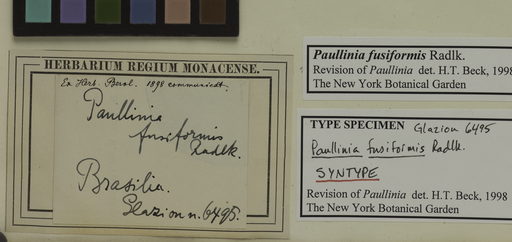 HERBARIUM REGIUM MONACENSE.
Ex Herb. Berol. 1898 communicat.
Paullinia
fusiformis
Radlk.
Brasilia.
Glaziou n. 6495.
Paullinia fusiformis Radlk.
Revision of Paullinia det. H.T. Beck, 1998
The New York Botanical Garden
TYPE SPECIMEN Glaziou 6495
Paullinia fusiformis Radlk.
SYNTYPE
Revision of Paullinia det. H.T. Beck, 1998
The New York Botanical Garden